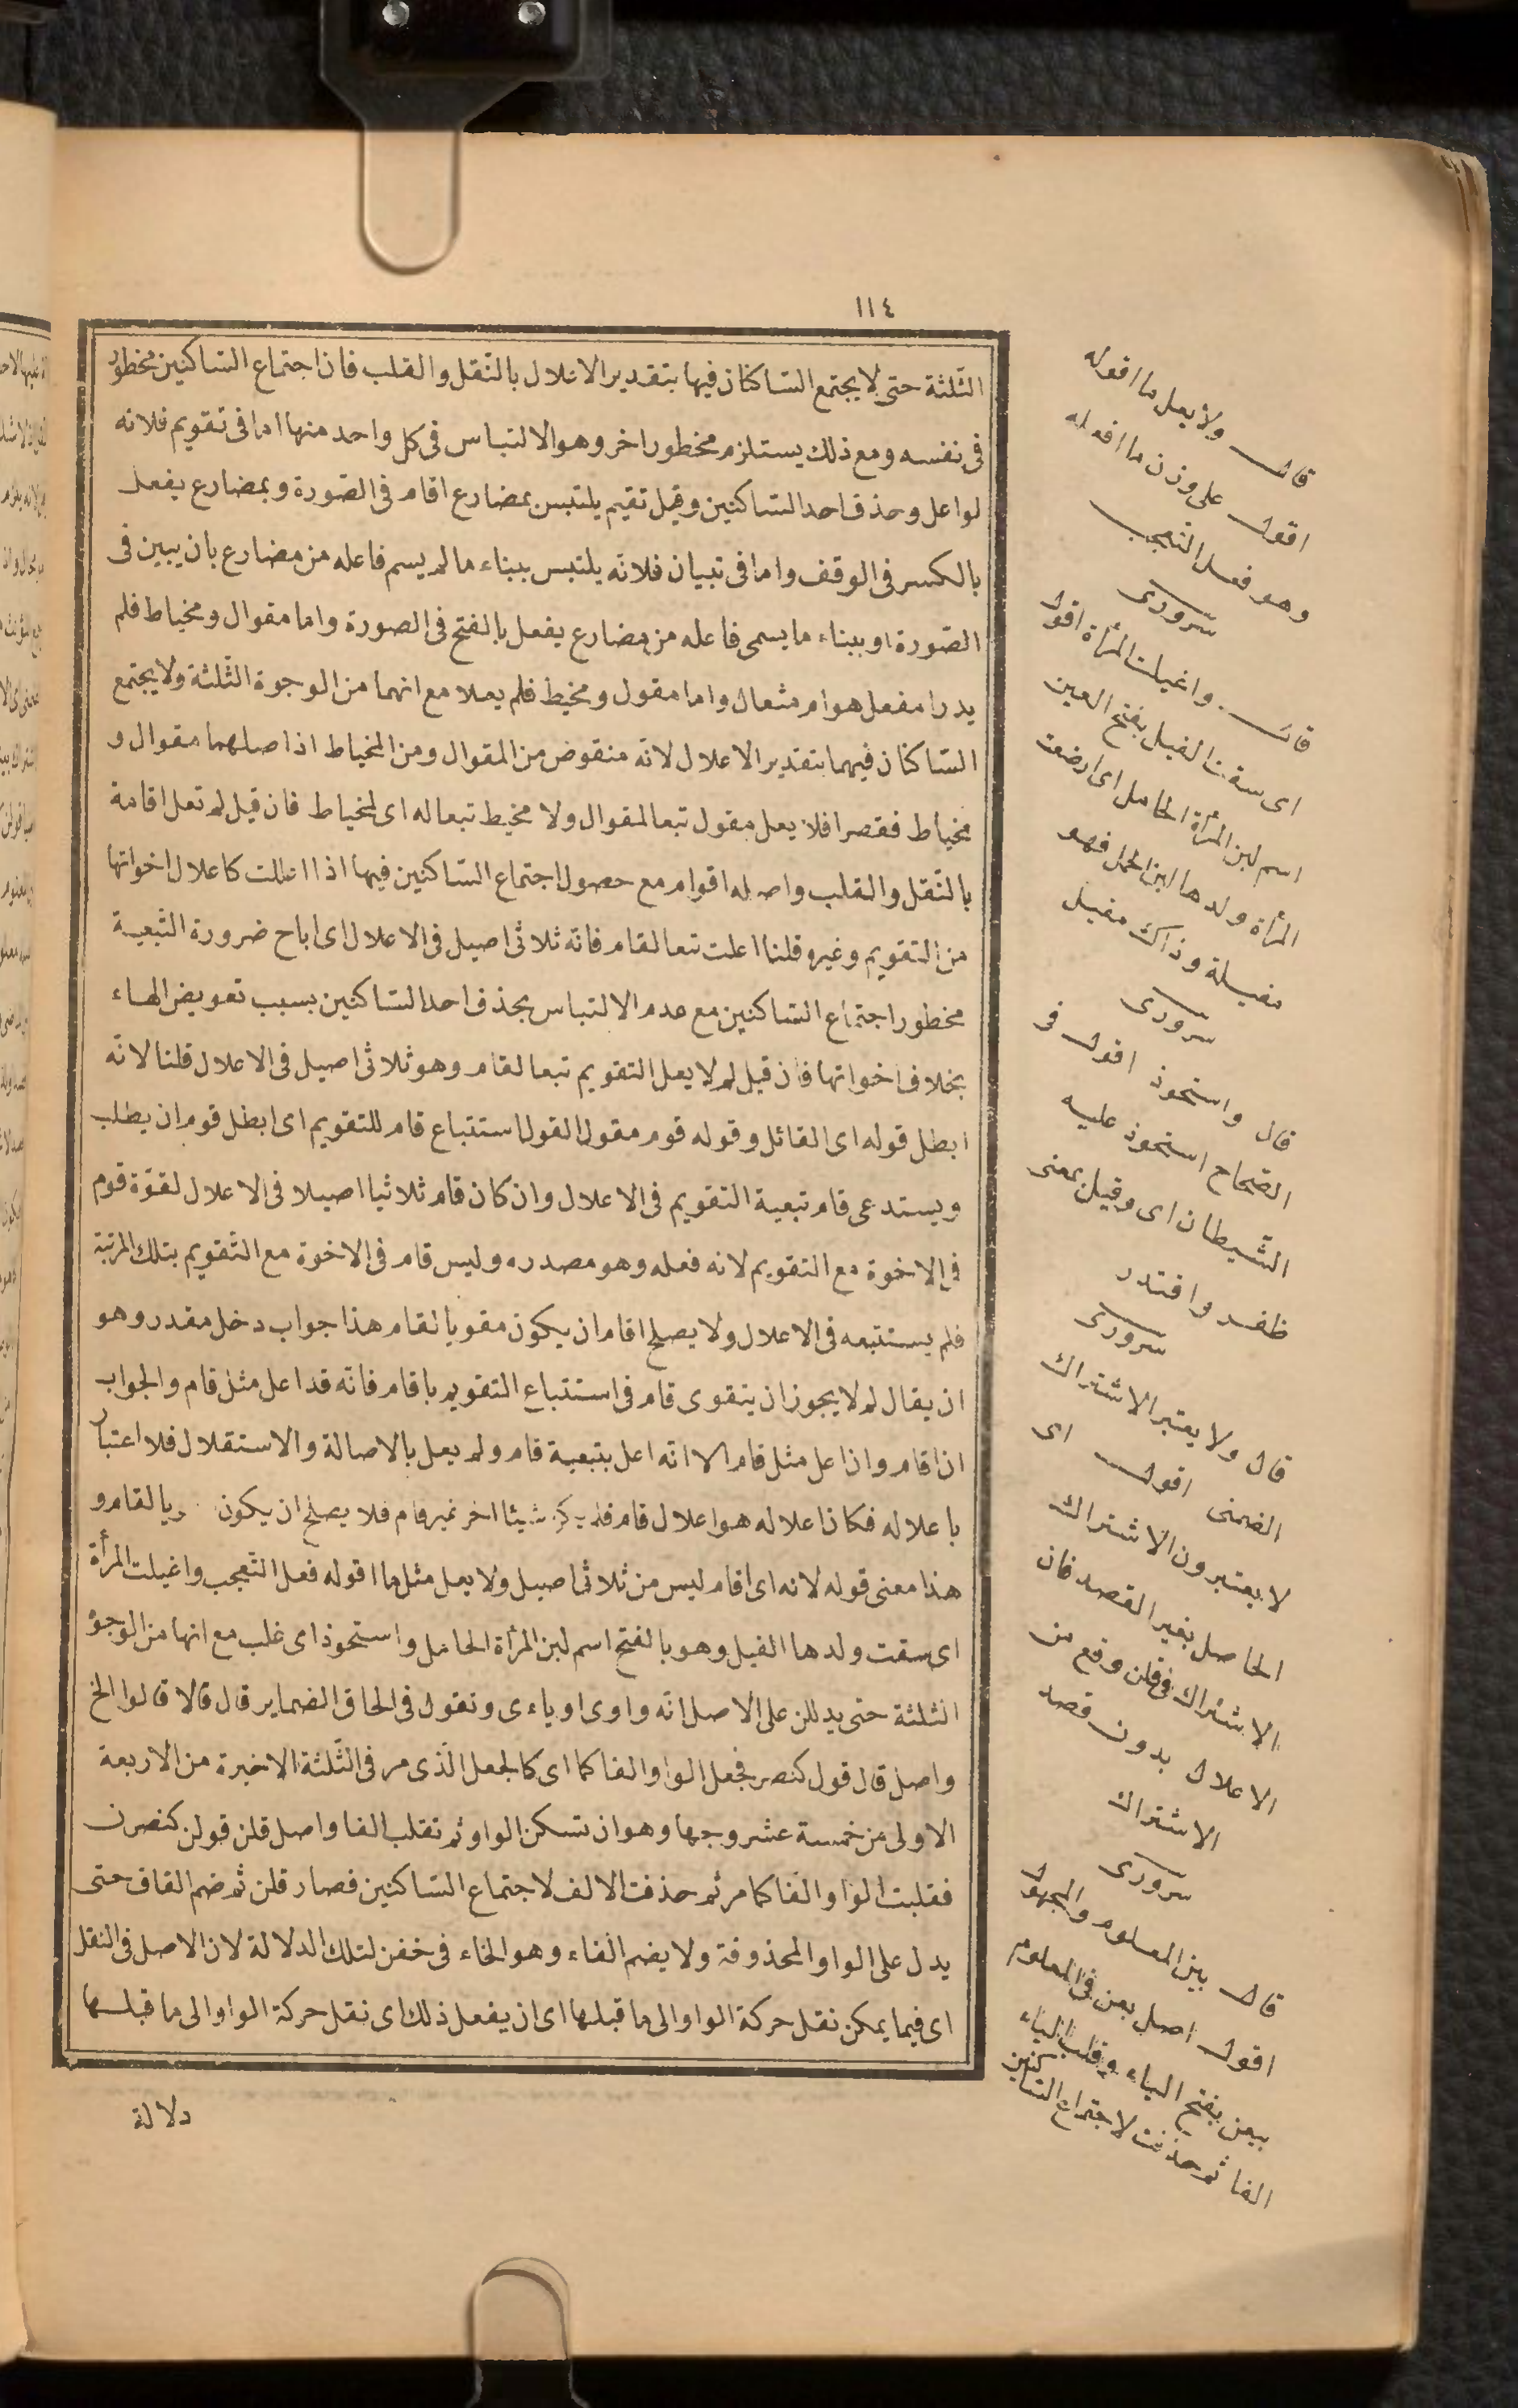 ١١٤
الثلثة حتى لا يجتمع الساكنان فيها بتقدير الاعلال بالنقل والقلب فان اجتماع الساكنين محظور
فى نفسه ومع ذلك يستلزم محظورا اخر وهو الالتباس فى كل واحد منها اما فى تقويم فلانه
لو اعل وحذف احد الساكنين وقيل تقيم يلتبس بمضارع اقام فى الصورة وبمضارع يفعل
بالكسر فى الوقف واما فى تبيان فلانه يلتبس ببناء ما لم يسم فاعله من مضارع بان يبين فى
الصورة او ببناء ما يسمى فاعله من مضارع يفعل بالفتح فى الصورة واما مقوال ومخياط فلم
يدر امفعل هو ام مفعال واما مقول ومخيط فلم يعلا مع انهما من الوجوة الثلثة ولا يجتمع
الساكنان فيهما بتقدير الاعلال لانه منقوض من المقوال ومن المخياط اذ اصلهما مقوال و
مخياط فقصرا فلا يعل مقول تبعا لمقوال ولا مخيط تبعا له اى لمخياط فان قيل لم تعل اقامة
بالنقل والقلب واصله اقوام مع حصول اجتماع الساكنين فيها اذا اعللت كاعلال اخواتها
من التقويم وغيره قلنا اعلت تبعا لقام فانه ثلاثى اصيل فى الاعلال اى اباح ضرورة التبعية
محظور اجتماع الساكنين مع عدم الالتباس بحذف احد الساكنين بسبب تعويض الهاء
بخلاف اخواتها فان قيل لم لا يعل التقويم تبعا لقام وهو ثلاثى اصيل فى الاعلال قلنا لانه
ابطل قوله اى القائل وقوله قوم مقول القول استتباع قام للتقويم اى ابطل قوم ان يطلب
ويستدعى قام تبعية التقويم فى الاعلال وان كان قام ثلاثيا اصيلا فى الاعلال لقوة قوم
فى الاخوة مع التقويم لانه فعله وهو مصدره وليس قام فى الاخوة مع التقويم بتلك المرتبة
فلم يستتبعه فى الاعلال ولا يصلح اقام ان يكون مقويا لقام هذا جواب دخل مقدر وهو
ان يقال لم لا يجوز ان يتقوى قام فى استتباع التقويم باقام فانه قد اعل مثل قام والجواب
ان اقام وان اعل مثل قام الا انه اعل بتبعية قام ولم يعل بالاصالة والاستقلال فلا اعتبار
باعلاله فكان اعلاله هو اعلال قام شيئا اخر غير قام فلا يصلح ان يكون لقام و
هذا معنى قوله لانه اى اقام ليس من ثلاثى اصيل ولا يعل مثل ما اقوله فعل التعجب واغيلت المرأة
اى سقت ولدها الغيل وهو بالفتح اسم لبن المرأة الحامل واستحوذ اى غلب مع انها من الوجوه
الثلثة حتى يدللن على الاصل انه واوى او ياءى وتقول فى الحاق الضماير قال قالا قالوا الخ
واصل قال قول كنصر فجعل الواو الفا كما اى كالجعل الذى مر فى الثلثة الاخيرة من الاربعة
الاولى من خمسة عشر وجها وهو ان تسكن الواو ثم تقلب الفا واصل قلن قولن كنصرن
فقلبت الواو الفا كما مر ثم حذفت الالف لاجتماع الساكنين فصار قلن ثم ضم القاف حتى
يدل على الواو المحذوفة ولا يضم الفاء وهو الخاء فى خفن لتلك الدلالة لان الاصل فى النقل
اى فيما يمكن نقل حركة الواو الى ما قبلها اى ان يفعل ذلك اى نقل حركة الواو الى ما قبلها
دلالة
قال ولا يعل ما اقوله
اقول على وزن ما افعله
وهو فعل التعجب
سرورى
قال واغيلت المرأة اقول
اى سقت الغيل بفتح الغين
اسم لبن المرأة الحامل اى ارضعت
المرأة ولدها لبن الحمل فهو
مغيلة وذاك مغيل
سرورى
قال واستحوذ اقول فى
الصحاح استحوذ عليه
الشيطان اى وقيل بمعنى
ظفر واقتدر
سرورى
قال ولا يعتبر الاشتراك
الضمنى اقول اى
لا يعتبرون الاشتراك
الحاصل بغير القصد فان
الاشتراك فى قلن وقع من
الاعلال بدون قصد
الاشتراك
سرورى
قال بين المعلوم والمجهول
اقول اصل بعن فى المعلوم
بيعن بفتح الياء وقلب الياء
الفا ثم حذفت لاجتماع الساكنين